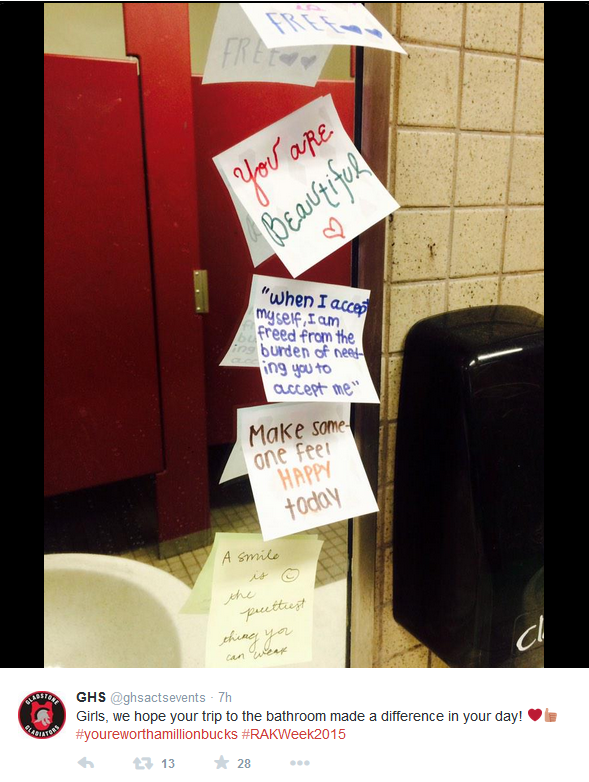 is
FREE
FREE
You are
Beautiful
"when I accept
myself, I am
freed from the
burden of need-
ing you to
accept me"
Make some-
one feel
HAPPY
today
A smile
is
the
prettiest
thing you
can wear
GLADSTONE
GLADIATORS
GHS @ghsactsevents · 7h
Girls, we hope your trip to the bathroom made a difference in your day!
#youreworthamillionbucks #RAKWeek2015
13
28